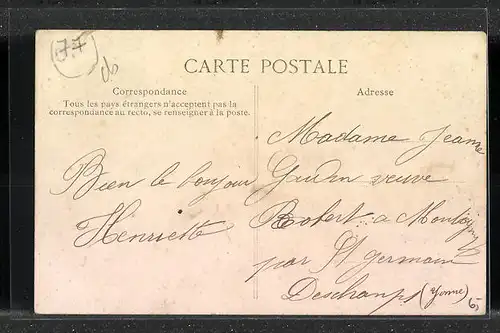 77
CARTE POSTALE
Correspondance
Tous les pays étrangers n'acceptent pas la
correspondance au recto, se renseigner à la poste.
Bien le bonjour
Henriette
Adresse
Madame Jeanne
Gaudin veuve
Robert a Montigny
par St germain
Deschamps (Yonne)